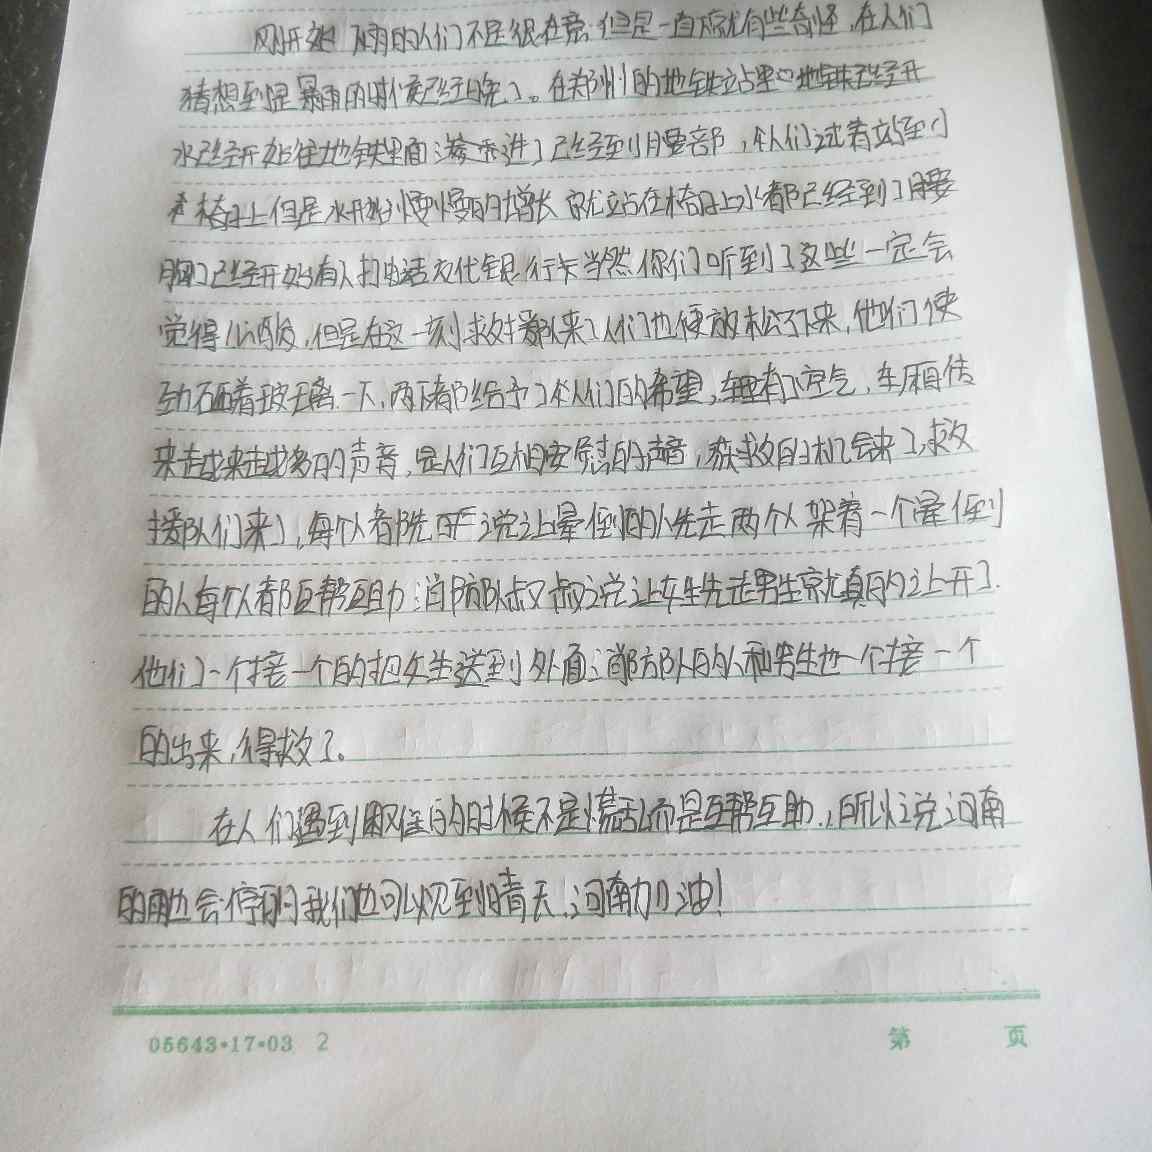 刚开始 下雨的人们不是很在意,但是一直下就有些奇怪,在人们
猜想到是暴雨的时候已经晚了。在郑州的地铁站里 地铁已经开
水已经开始往地铁里面渗 进了已经到了腰部,人们试着站到
椅子上但是水开始慢慢的增长 就站在椅子上水都已经到了腰
胸了已经开始有人打电话交代银行卡当然你们听到了这些一定会
觉得心酸,但是在这一刻救援队来了人们也便放松了下来,他们使
劲砸着玻璃一下,两下都给予了人们的希望,车里有了空气,车厢传
来越来越多的声音,是人们互相安慰的声音,获救的机会来了,救
援队们来了,每个人都先 说让晕倒的人先走两个人架着一个晕倒
的人每个人都互帮互助 消防队叔叔说让女生先走男生就真的让开了.
他们一个接一个的把女生送到外面消防队的人和男生也一个接一个
的出来,得救了。
在人们遇到困难的时候不是慌乱而是互帮互助.,所以说河南
的雨也会停的我们也可以见到晴天,河南加油!
05643·17·03 2
第 页